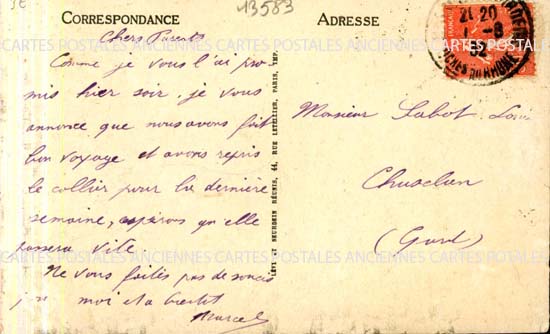 13583
CORRESPONDANCE
Chers Parents
Comme je vous l'ai pro
mis hier soir, je vous
annonce que nous avons fait
bon voyage et avons repris
le collier pour la dernière
semaine, espérons qu'elle
passera vite.
Ne vous faites pas de soucis
moi et a bientôt
Marcel
LEVY ET NEURDEIN RÉUNIS, 44, RUE LETELLIER, PARIS, IMP.
ADRESSE
21 20
BCHES DU RHONE
Monsieur Sabot Louis
Chusclan
(Gard)
ANCIENNES CARTES POSTALES ANCIENNES CARTES POSTALES
CARTES POSTALES ANCIENNES CARTES POSTALES ANCIENNES